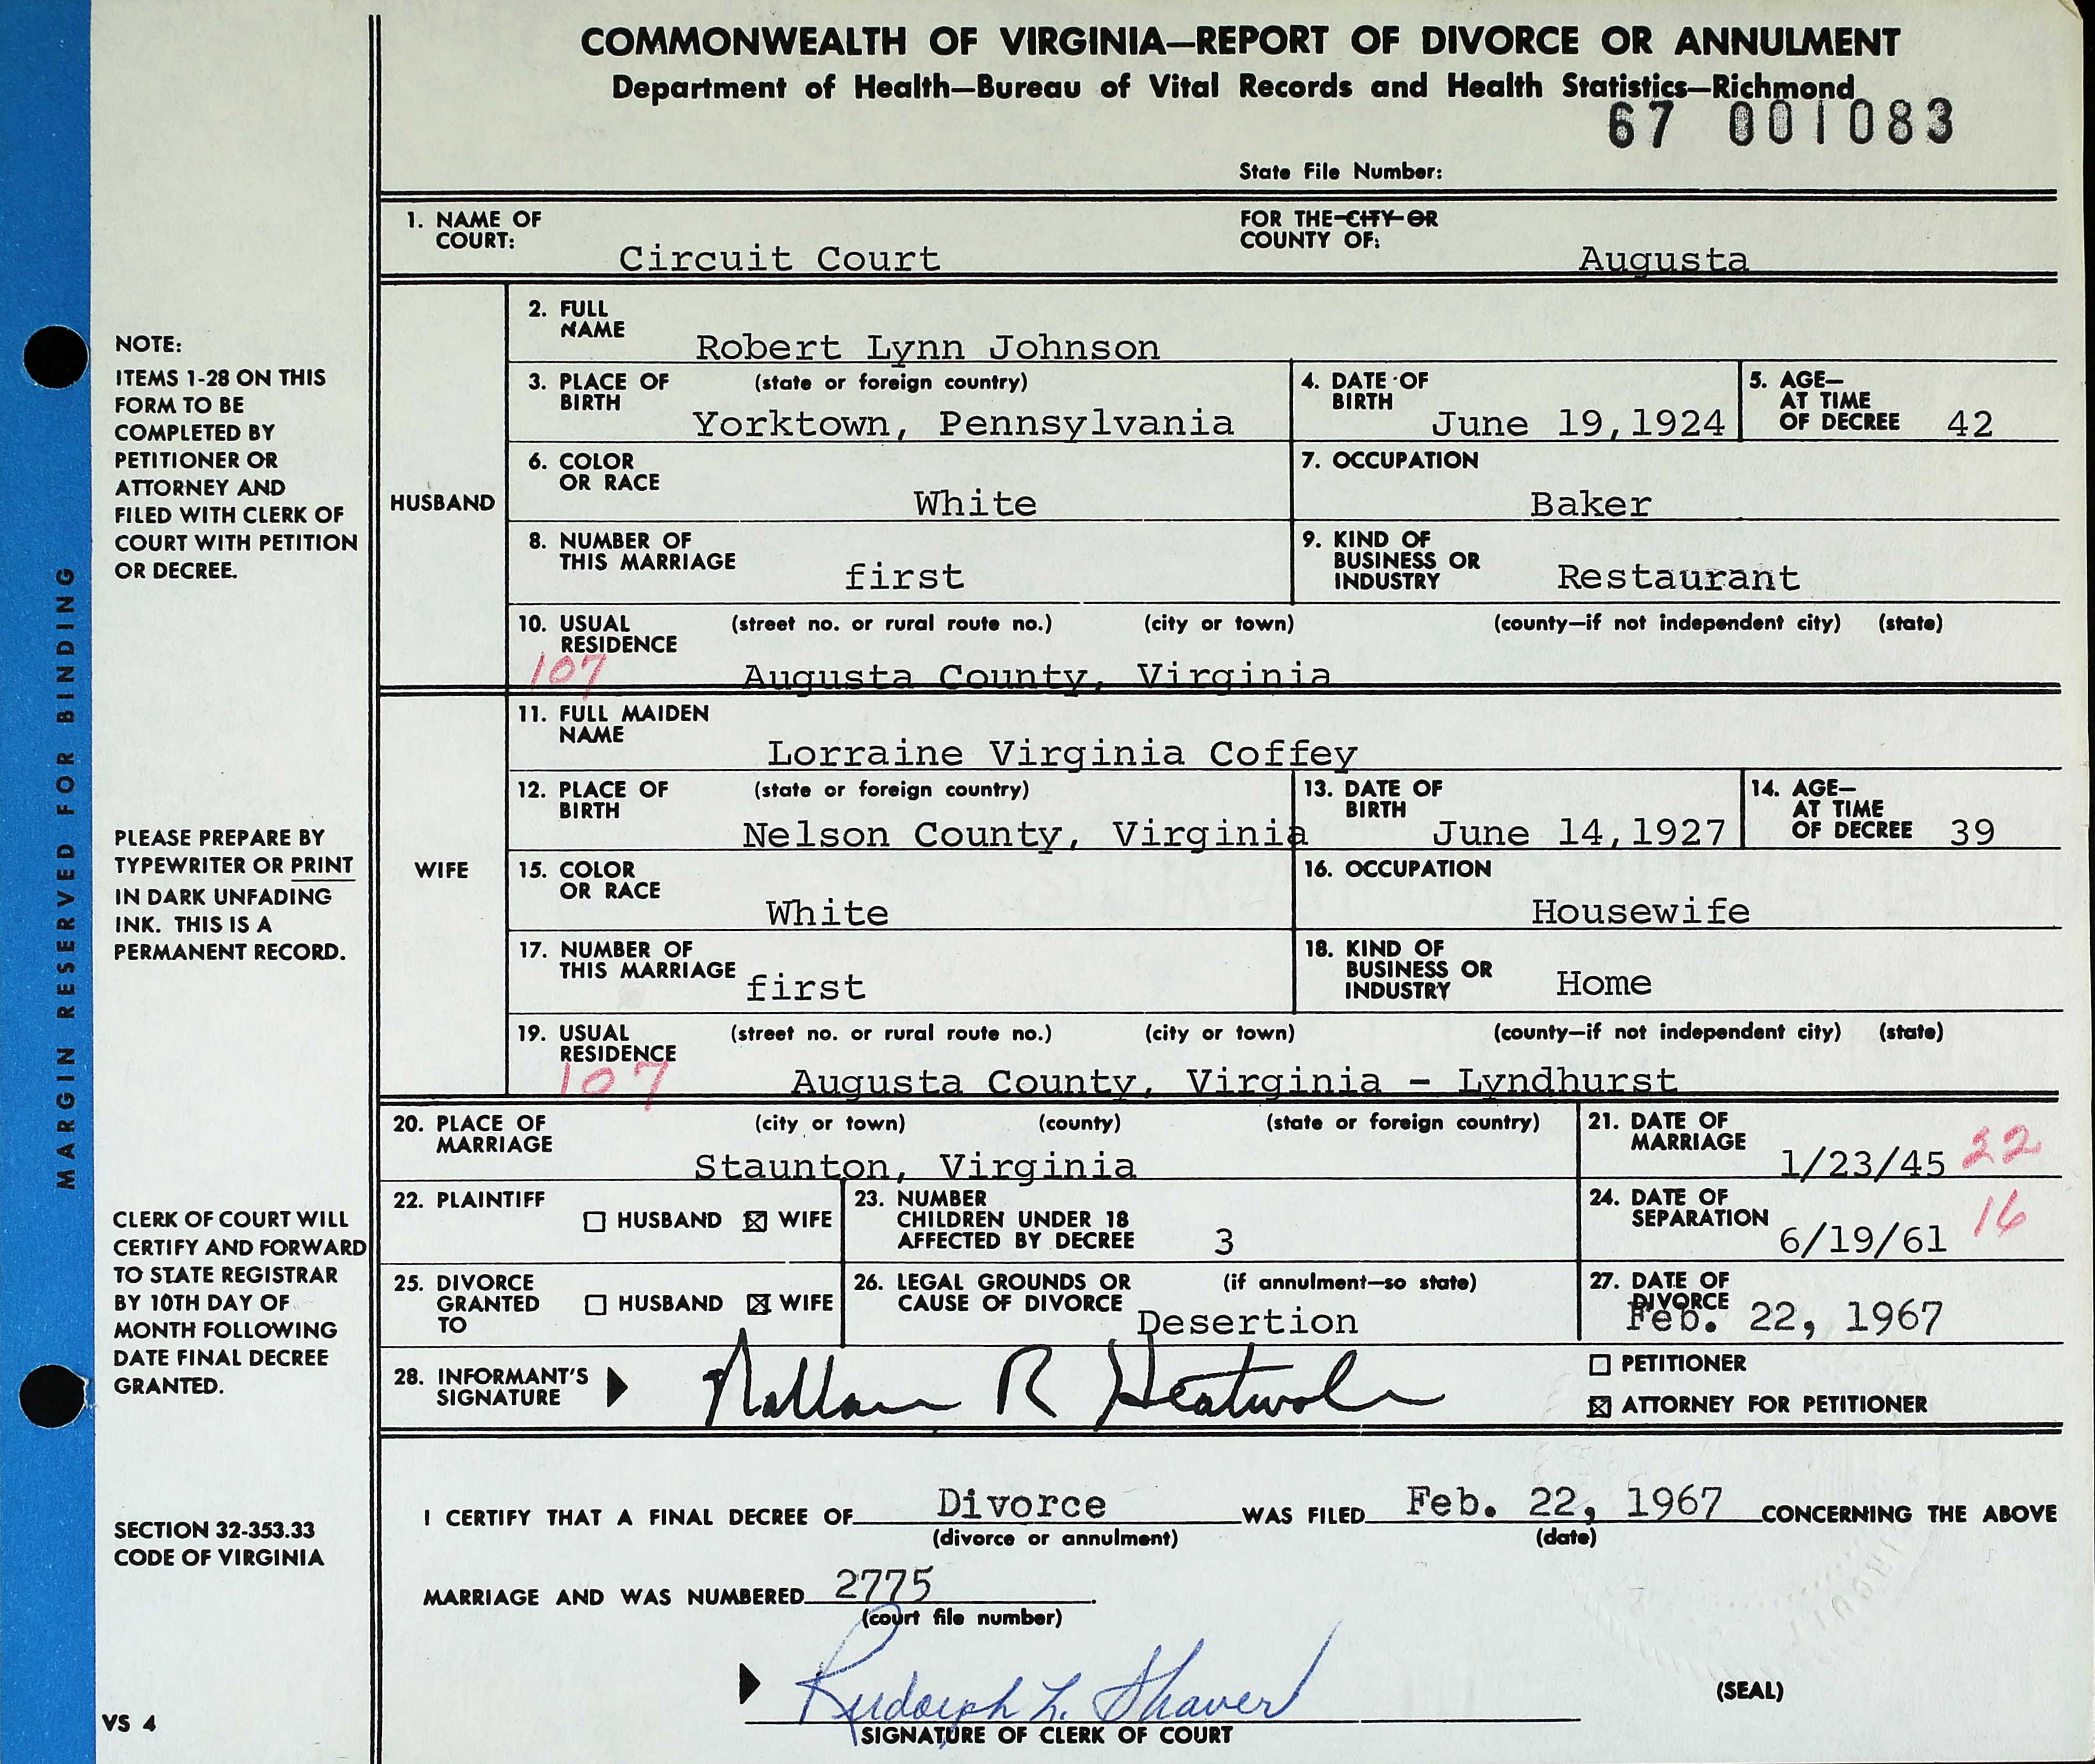 COMMONWEALTH OF VIRGINIA—REPORT OF DIVORCE OR ANNULMENT
Department of Health—Bureau of Vital Records and Health Statistics—Richmond
67 001083
State File Number:
1. NAME OF COURT: Circuit Court FOR THE CITY OR COUNTY OF: Augusta
HUSBAND
2. FULL NAME Robert Lynn Johnson
3. PLACE OF BIRTH (state or foreign country) Yorktown, Pennsylvania
4. DATE OF BIRTH June 19,1924
5. AGE— AT TIME OF DECREE 42
6. COLOR OR RACE White
7. OCCUPATION Baker
8. NUMBER OF THIS MARRIAGE first
9. KIND OF BUSINESS OR INDUSTRY Restaurant
10. USUAL RESIDENCE (street no. or rural route no.) (city or town) (county—if not independent city) (state)
107 Augusta County, Virginia
WIFE
11. FULL MAIDEN NAME Lorraine Virginia Coffey
12. PLACE OF BIRTH (state or foreign country) Nelson County, Virginia
13. DATE OF BIRTH June 14,1927
14. AGE— AT TIME OF DECREE 39
15. COLOR OR RACE White
16. OCCUPATION Housewife
17. NUMBER OF THIS MARRIAGE first
18. KIND OF BUSINESS OR INDUSTRY Home
19. USUAL RESIDENCE (street no. or rural route no.) (city or town) (county—if not independent city) (state)
107 Augusta County, Virginia - Lyndhurst
20. PLACE OF MARRIAGE (city or town) (county) (state or foreign country) Staunton, Virginia
21. DATE OF MARRIAGE 1/23/45 22
22. PLAINTIFF ☐ HUSBAND ☒ WIFE
23. NUMBER CHILDREN UNDER 18 AFFECTED BY DECREE 3
24. DATE OF SEPARATION 6/19/61 16
25. DIVORCE GRANTED TO ☐ HUSBAND ☒ WIFE
26. LEGAL GROUNDS OR CAUSE OF DIVORCE (if annulment—so state) Desertion
27. DATE OF DIVORCE Feb. 22, 1967
28. INFORMANT'S SIGNATURE R Heatwole
☐ PETITIONER
☒ ATTORNEY FOR PETITIONER
I CERTIFY THAT A FINAL DECREE OF Divorce WAS FILED Feb. 22, 1967 CONCERNING THE ABOVE
(divorce or annulment) (date)
MARRIAGE AND WAS NUMBERED 2775.
(court file number)
Rudolph L. Shaver
SIGNATURE OF CLERK OF COURT
(SEAL)
MARGIN RESERVED FOR BINDING
NOTE:
ITEMS 1-28 ON THIS
FORM TO BE
COMPLETED BY
PETITIONER OR
ATTORNEY AND
FILED WITH CLERK OF
COURT WITH PETITION
OR DECREE.
PLEASE PREPARE BY
TYPEWRITER OR PRINT
IN DARK UNFADING
INK. THIS IS A
PERMANENT RECORD.
CLERK OF COURT WILL
CERTIFY AND FORWARD
TO STATE REGISTRAR
BY 10TH DAY OF
MONTH FOLLOWING
DATE FINAL DECREE
GRANTED.
SECTION 32-353.33
CODE OF VIRGINIA
VS 4